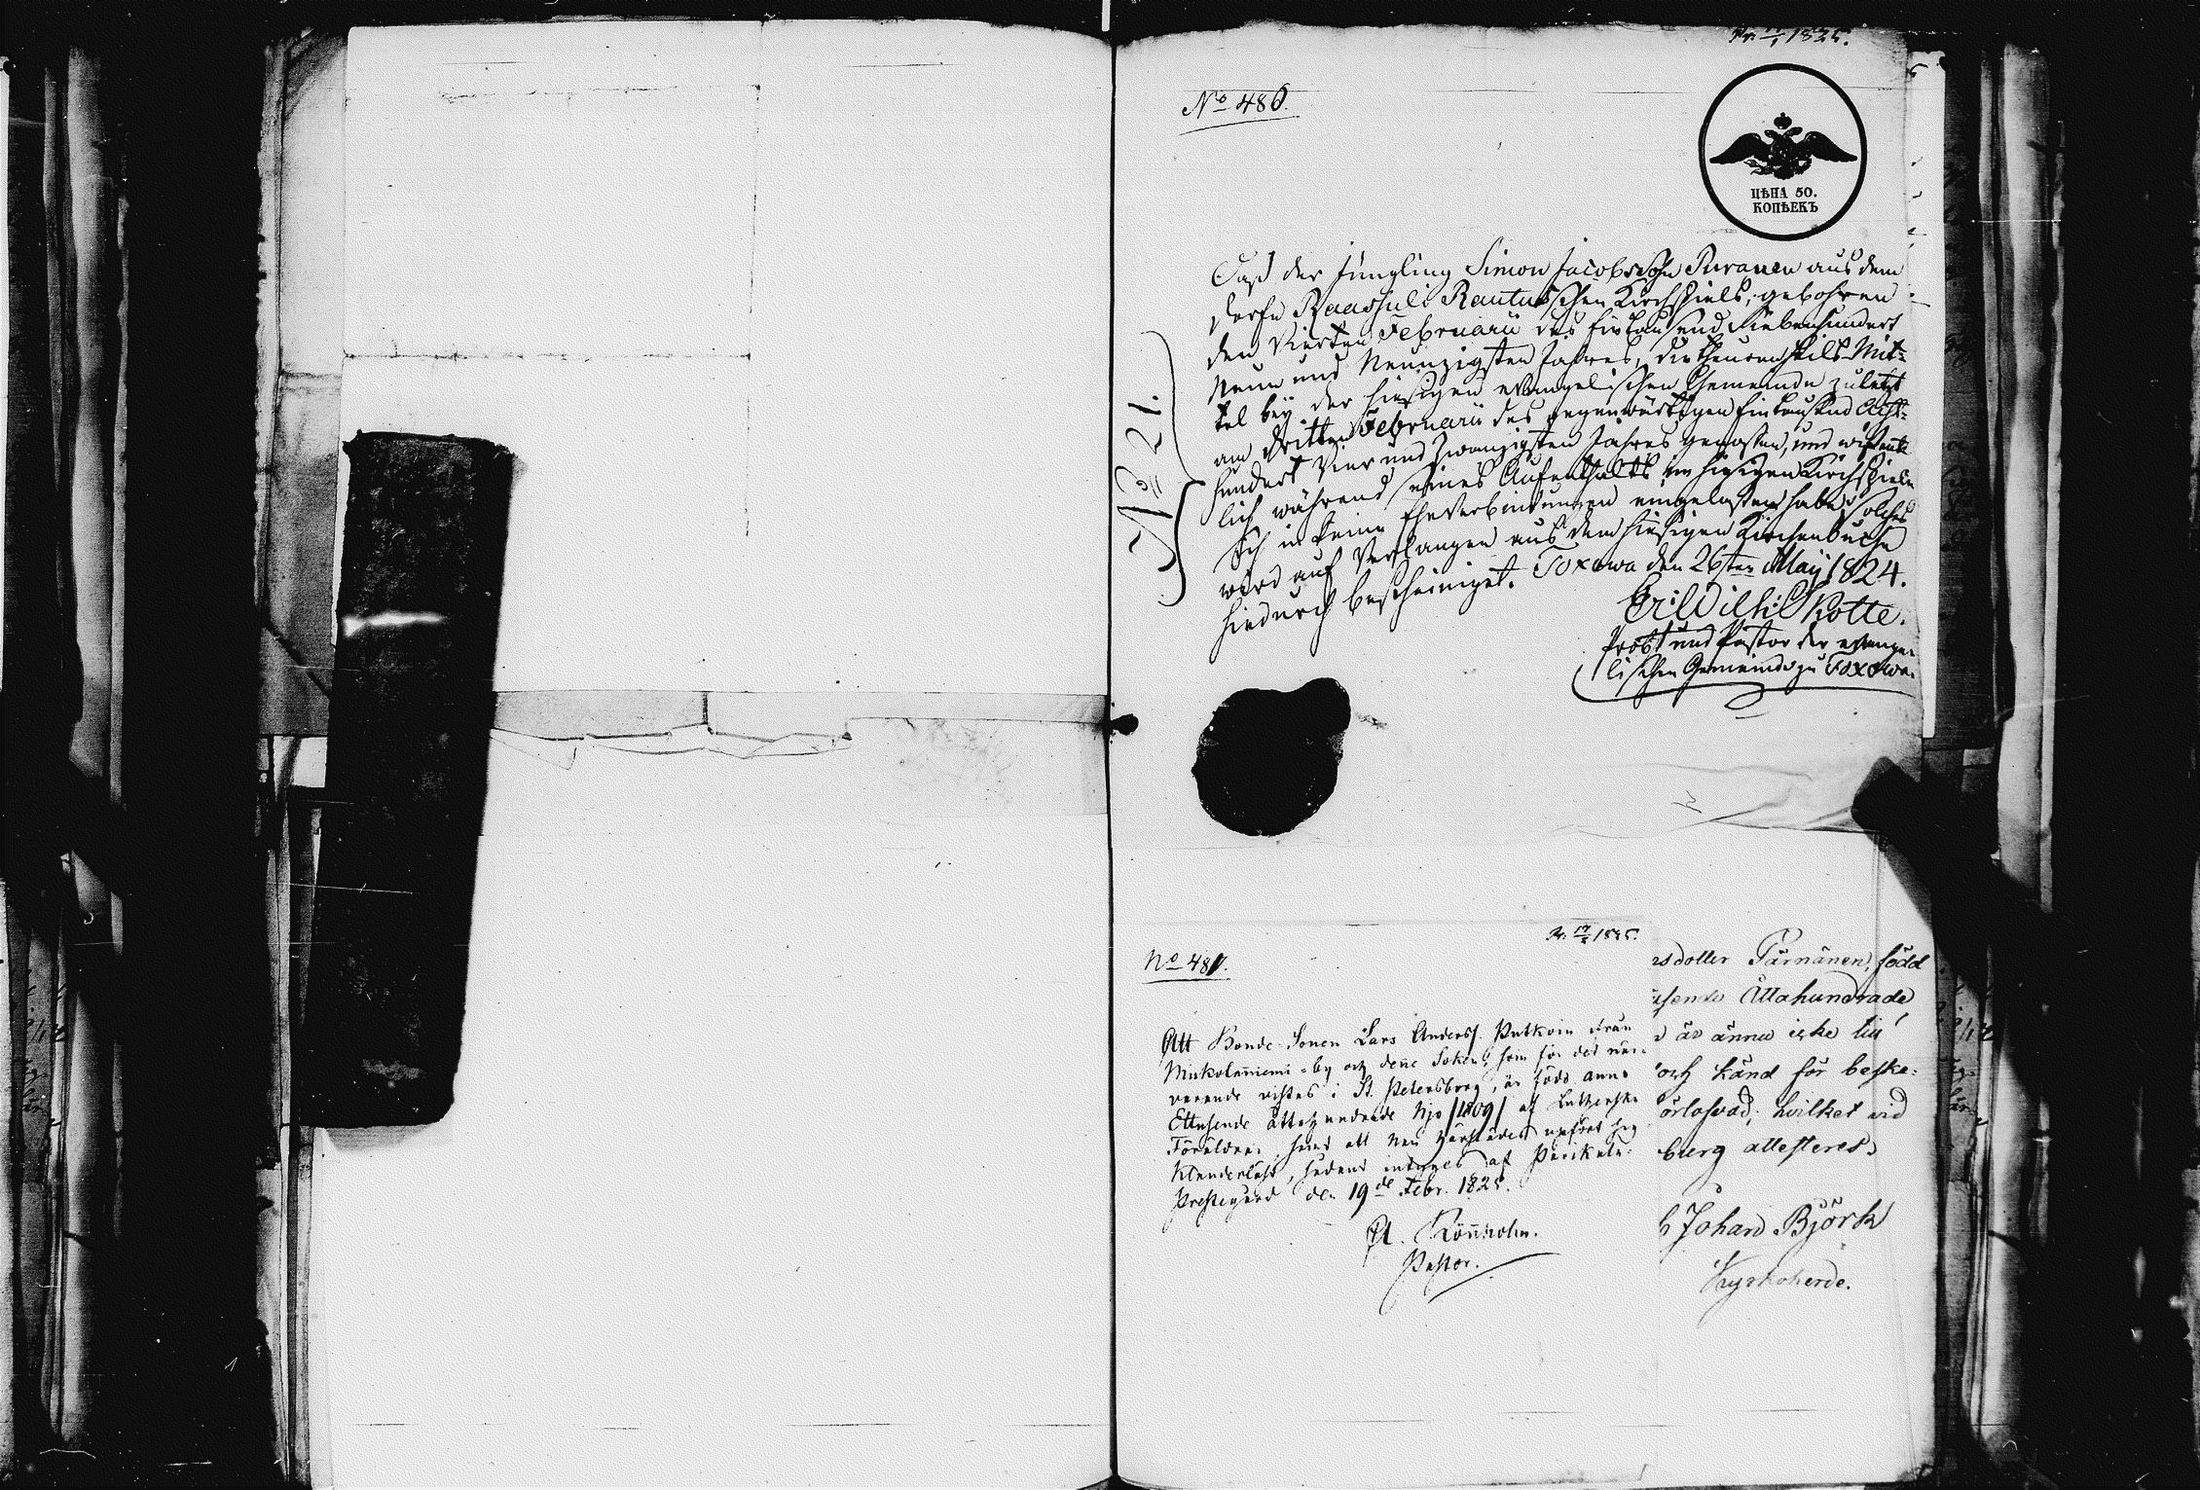 Pr. 17/1 1825.
No 486.
ЦѢНА 50.
КОПѢЕКЪ
No 21.
Daß der Jüngling Simon Jacobssohn Puranen aus dem
Dorfe Raassuli Rautusschen Kirchspiels, gebohren
den Vierten Februarii des Eintausend Siebenhundert
Neun und Neunzigsten Jahres, die theuren Heils-Mit=
tel bey der hiesigen evangelischen Gemeinde zuletzt
am Dritten Februarii des gegenwärtigen Eintausend Acht=
hundert Vier und Zwanzigsten Jahres genossen, und wissent=
lich während seines Aufenthalts im hiesigen Kirchspiele
sich in keine Eheverbindungen eingelassen habe; solches
wird auf Verlangen aus dem hiesigen Kirchenbuche
hiedurch bescheiniget. Toxowa den 26sten May 1824.
Skotte.
Probst und Pastor der evange=
lischen Gemeinde zu Toxowa.
1825.
No 487.
Att Bonde-Sonen Lars Anders. Putkoin från
by och denne Soken, som för det när=
varande vistas i St. Petersburg, är född anno
Ettusende åttahundrade Nio /1809/ af Lutherske
Föräldrar, samt att han härstädes upfört sig
klanderlöst, intygas af
Prestegård den 19de Febr. 1825.
Rönnholm.
Pastor.
sdotter Tärnänen, född
usende Åttahundrade
är ännu icke till
och känd för beske=
örlofvad; hvilket vid
burg attesteres,
Johan Björk
Kyrkoherde.